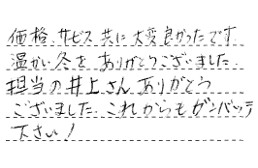 価格、サービス共に大変良かったです
温かい冬を ありがとうございました
担当の井上さん ありがとう
ございました、これからもガンバッテ
下さい！